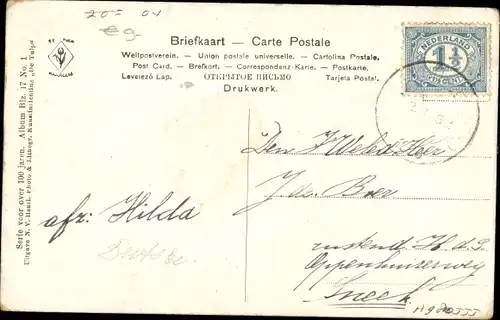 20= 04
€9-
Briefkaart — Carte Postale
Weltpostverein. — Union postale universelle. — Cartolina Postale.
Post Card. — Brefkort. — Correspondenz-Karte. — Postkarte.
Levelező Lap. ОТКРЫТОЕ ПИСЬМО Tarjeta Postal.
Drukwerk.
NEDERLAND
1½
CENT
Serie voor over 100 jaren. Album Blz. 17 No. 1
Uitgave N. V. Handl. Photo & Lijmagr. Kunstinrichting „De Tulp"
Den Weled Heer
J. de Boer
Oppenhuiserweg
Sneek.
afz: Hilda